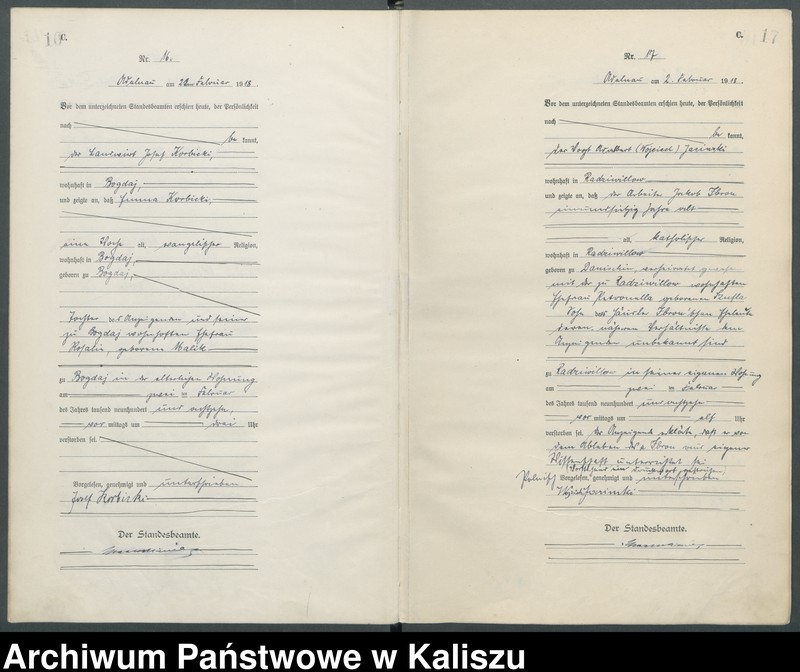 16
C.
Nr. 16.
Adelnau am 2ten Februar 1918.
Vor dem unterzeichneten Standesbeamten erschien heute, der Persönlichkeit
nach
be kannt,
der Landwirt Josef Korbicki,
wohnhaft in Bogdaj,
und zeigte an, daß Emma Korbicki,
eine Woche alt, evangelischer Religion,
wohnhaft in Bogdaj,
geboren zu Bogdaj,
Tochter des Anzeigenden und seiner
zu Bogdaj wohnhaften Ehefrau
Rosalie, geborene Walik
zu Bogdaj in der elterlichen Wohnung
am zwei ten Februar
des Jahres tausend neunhundert und achtzehn,
vor mittags um drei Uhr
verstorben sei.
Vorgelesen, genehmigt und unterschrieben
Josef Korbicki
Der Standesbeamte.
C.
17
Nr. 17
Adelnau am 2. Februar 1918.
Vor dem unterzeichneten Standesbeamten erschien heute, der Persönlichkeit
nach
be kannt,
der Vogt Adalbert (Wojciech) Jasinski
wohnhaft in Radziwillow
und zeigte an, daß der Arbeiter Jakob Ibron
Jahre alt
alt, katholischer Religion,
wohnhaft in Radziwillow
geboren zu Daniszyn verheiratet gewesen
mit der zu Radziwillow wohnhaften
Ehefrau Petronella geborenen
Sohn der Häusler Ibron'schen Eheleute
deren nähere Verhältnisse dem
Anzeigenden unbekannt sind
zu Radziwillow in seiner eigenen Wohnung
am zwei ten Februar
des Jahres tausend neunhundert und achtzehn
vor mittags um elf Uhr
verstorben sei. Der Anzeigende erklärte, daß er von
dem Ableben des Ibron aus eigener
Wissenschaft unterrichtet sei
Vorgelesen, genehmigt und unterschrieben
Polnisch
Jasinski
Der Standesbeamte.
Archiwum Państwowe w Kaliszu